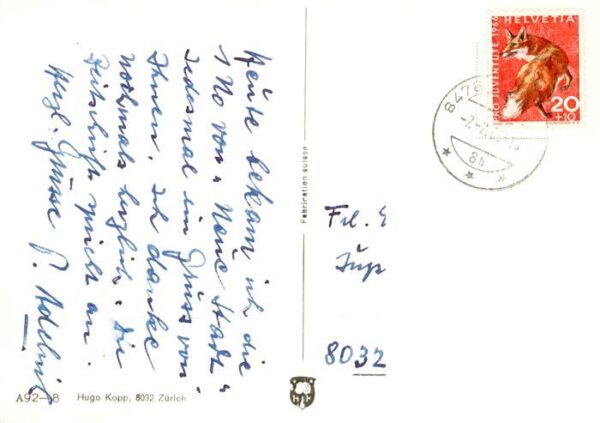 Heute bekam ich die
1 No von „Neue Stadt"
Jedesmal ein Gruss von
Ihnen. Ich danke
nochmals herzlich. Die
Zeitschrift spricht an.
Herzl. Grüsse
HELVETIA
PRO JUVENTUTE 1966
20
+10
8h
Fabrication suisse
Frl.
8032
A92–8 Hugo Kopp, 8032 Zürich
HK